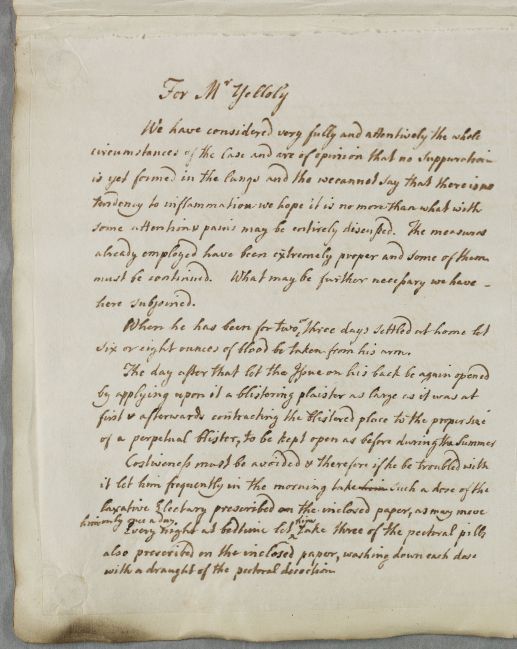 For Mr Yelloly
We have considered very fully and attentively the whole
circumstances of the Case and are of opinion that no suppuration
is yet formed in the Lungs and tho we cannot say that there is no
tendency to inflammation we hope it is no more than what with
some attention & pains may be entirely discussed. The measures
already employed have been extremely proper and some of them
must be continued. What may be further necessary we have
here subjoined.
When he has been for two or three days settled at home let
six or eight ounces of blood be taken from his arm.
The day after that let the Issue on his back be again opened
by applying upon it a blistering plaister as large as it was at
first & afterwards contracting the blistered place to the proper size
of a perpetual blister, to be kept open as before during the summer
Costiveness must be avoided & therefore if he be troubled with
it let him frequently in the morning take him such a dose of the
laxative Electary prescribed on the inclosed paper, as may move
him only once a day.
Every night at bedtime let him take three of the pectoral pills
also prescribed on the inclosed paper, washing down each dose
with a draught of the pectoral decoction